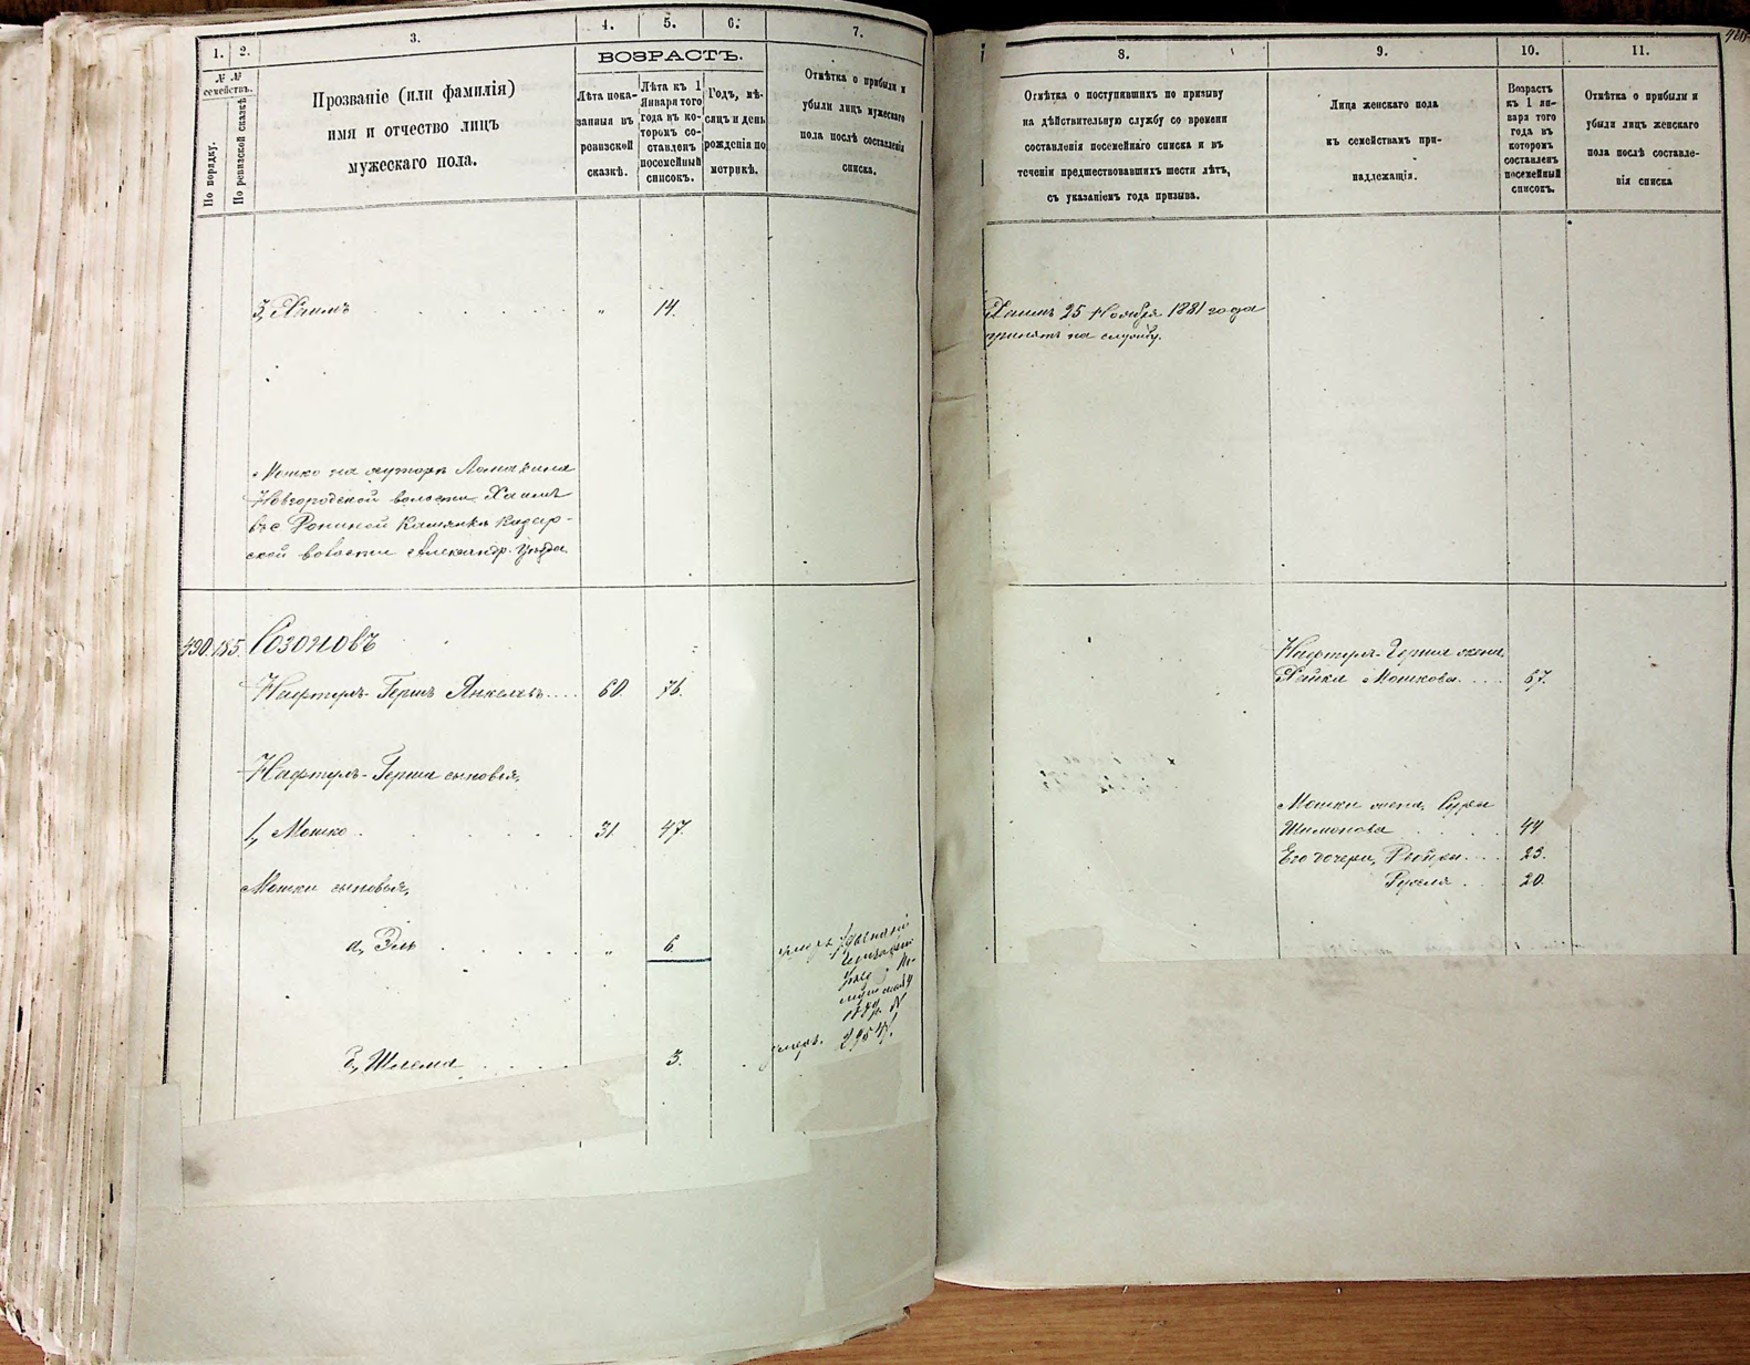 1.
2.
3.
4.
5.
6.
7.
ВОЗРАСТЪ.
№ №
семействъ.
По порядку.
По ревизской сказкѣ
Прозваніе (или фамилія)
имя и отчество лицъ
мужескаго пола.
Лѣта пока-
занныя въ
ревизской
сказкѣ.
Лѣта къ 1
Января того
года въ ко-
торомъ со-
ставленъ
посемейный
списокъ.
Годъ, мѣ-
сяцъ и день
рожденія по
метрикѣ.
Отмѣтка о прибыли и
убыли лицъ мужескаго
пола послѣ составленія
списка.
3, Хаимъ . . . . . „ 14.
Мошко на хуторѣ
Новгородской волости Хаимъ
въ с
ской волости Александр. уѣзда.
490. 185. Созоновъ
Нафтулъ-Гершъ Янкелевъ.... 60. 76.
Нафтулъ-Герша сыновья,
1, Мошко . . . . . 31. 47.
Мошки сыновья,
а, Эль . . . . . „ 6
2954.
умеръ.
2, Шлема . . . . 3.
8.
9.
10.
11.
Отмѣтка о поступившихъ по призыву
на дѣйствительную службу со времени
составленія посемейнаго списка и въ
теченіи предшествовавшихъ шести лѣтъ,
съ указаніемъ года призыва.
Лица женскаго пола
къ семействамъ при-
надлежащія.
Возрастъ
къ 1 ян-
варя того
года въ
которомъ
составленъ
посемейный
списокъ.
Отмѣтка о прибыли и
убыли лицъ женскаго
пола послѣ составле-
нія списка
Хаимъ 25 Ноября 1881 года
принятъ на службу.
Нафтулъ-Герша жена
Хайка Мошкова. . . . 67.
Мошки жена, Сура
Шимонова . . . . 44
Его дочери, . . . 23.
. . . 20.